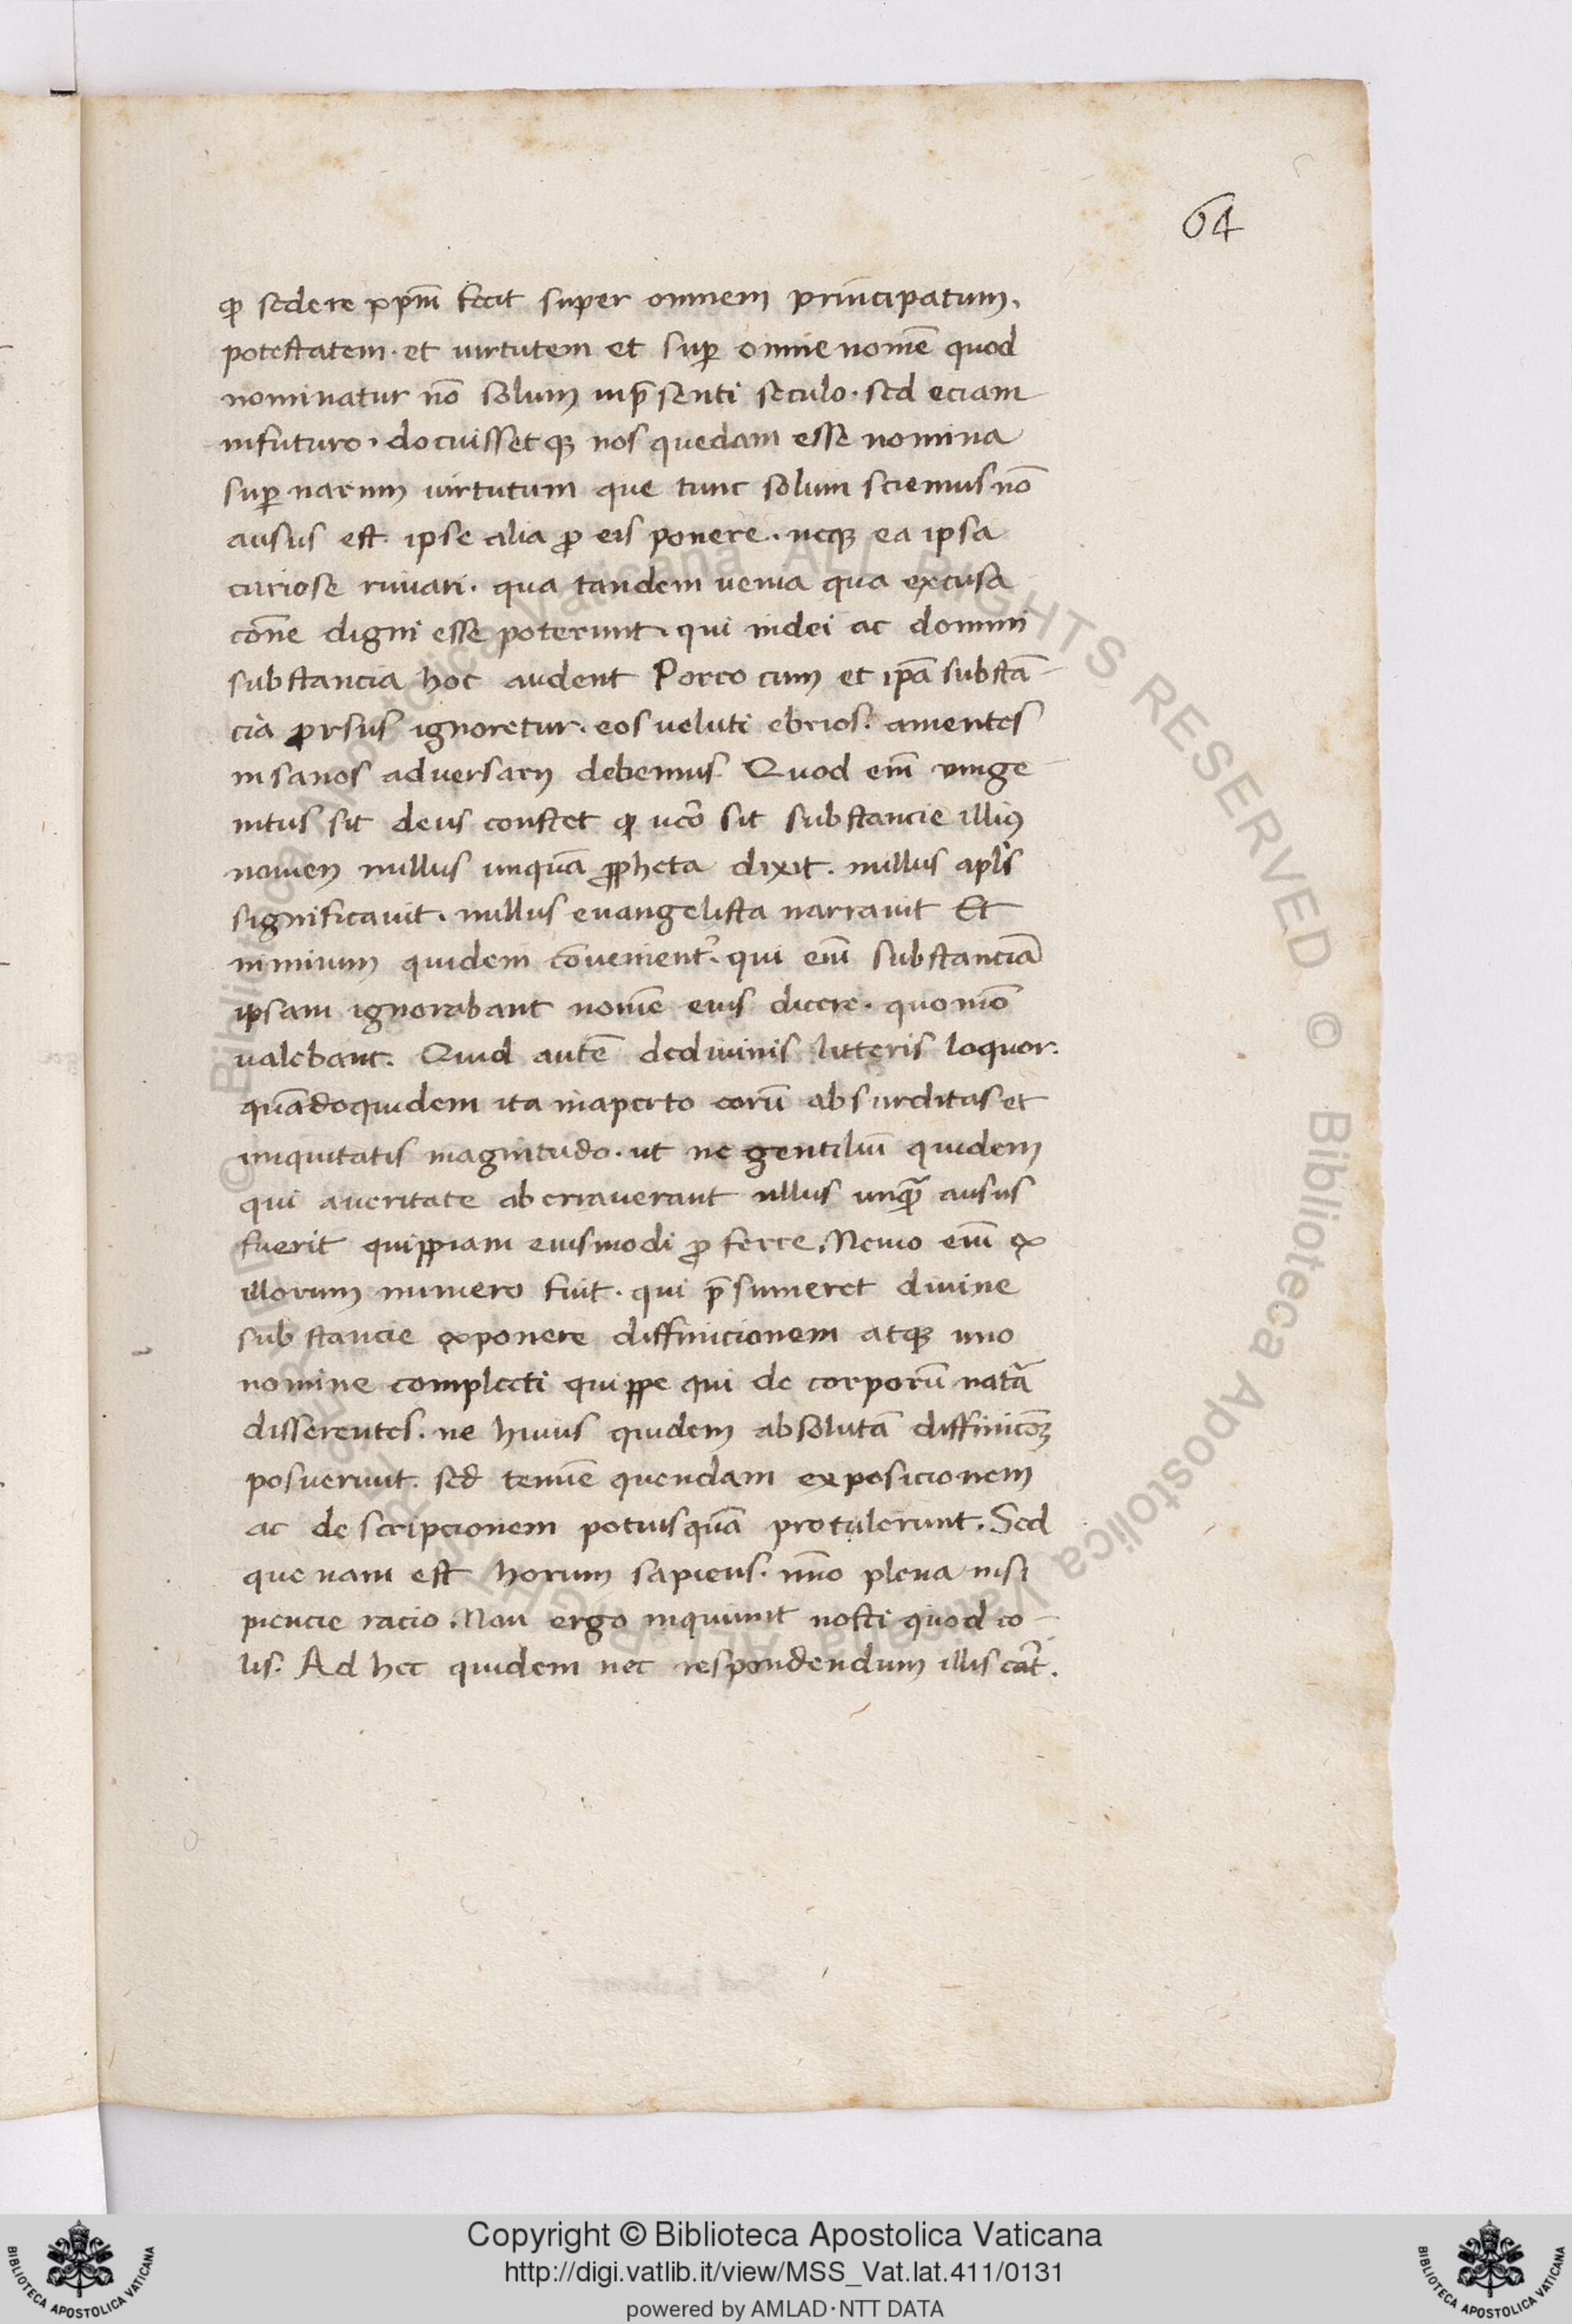 64
ꝙ sedere xpm̄ fecit super omnem principatum.
potestatem· et virtutem et suꝑ omne nom̄e quod
nominatur nō solum inp̄senti seculo· sed eciam
infuturo· docuissetqꝫ nos quedam esse nomina
suꝑnarum virtutum que tunc solum sciemus nō
ausus est ipse alia ꝓ eis ponere· neqꝫ ea ipsa
curiose rimari· qua tandem venia qua excusa
cōne digni esse poterunt· qui indei ac domini
substancia hoc audent Porro cum et ip̄a substā-
cia ꝓrsus ignoretur· eos veluti ebrios· amentes
insanos adversarij debemus· Quod eni᷑m unige-
nitus sit deus constet ꝙ vero sit substancie illiꝰ
nomen nullus unquā ꝓpheta dixit· nullus apl̄s
significavit· nullus evangelista narravit Et
nimium quidem cōvenient᷑· qui eni᷑m substanciā
ipsam ignorabant nom̄e eius dicere· quomō
valebant· Quid aut̄e dedivinis litteris loquor·
quādoquidem ita inaperto eorū absurditas et
iniquitatis magnitudo· ut ne gentiliū quidem
qui averitate aberraverant ullus unqꝫ̄ ausus
fuerit quippiam eiusmodi ꝓferre. Nemo eni᷑m ex
illorum numero fuit· qui p̄sumeret divine
substancie exponere diffinicionem atqꝫ uno
nomine complecti quippe qui de corporū natā
disserentes· ne huius quidem absolutā diffinicōꝫ
posuerunt· sed tenuē quendam exposicionem
ac descripcionem potiusquā protulerunt· Sed
que nam est horum sapiens· immo plena insi
piencie racio· Non ergo inquiunt nosti quod co-
lis· Ad hec quidem nec respondendum illis erat·
© Biblioteca Apostolica Vaticana ALL RIGHTS RESERVED © Biblioteca Apostolica Vaticana ALL RIGHTS RESERVED
Copyright © Biblioteca Apostolica Vaticana
http://digi.vatlib.it/view/MSS_Vat.lat.411/0131
powered by AMLAD·NTT DATA
BIBLIOTECA APOSTOLICA VATICANA
BIBLIOTECA APOSTOLICA VATICANA